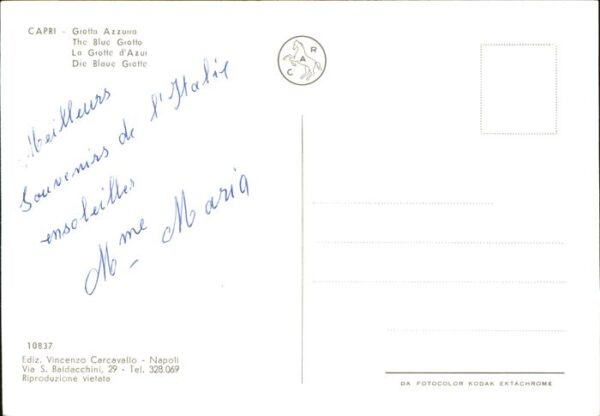 CAPRI - Grotta Azzurra
The Blue Grotto
La Grotte d'Azur
Die Blaue Grotte
C A R
Meilleurs
Souvenirs de l'Italie
ensoleilles
Mme Maria
10837
Ediz. Vincenzo Carcavallo - Napoli
Via S. Baldacchini, 29 - Tel. 328.069
Riproduzione vietata
DA FOTOCOLOR KODAK EKTACHROME